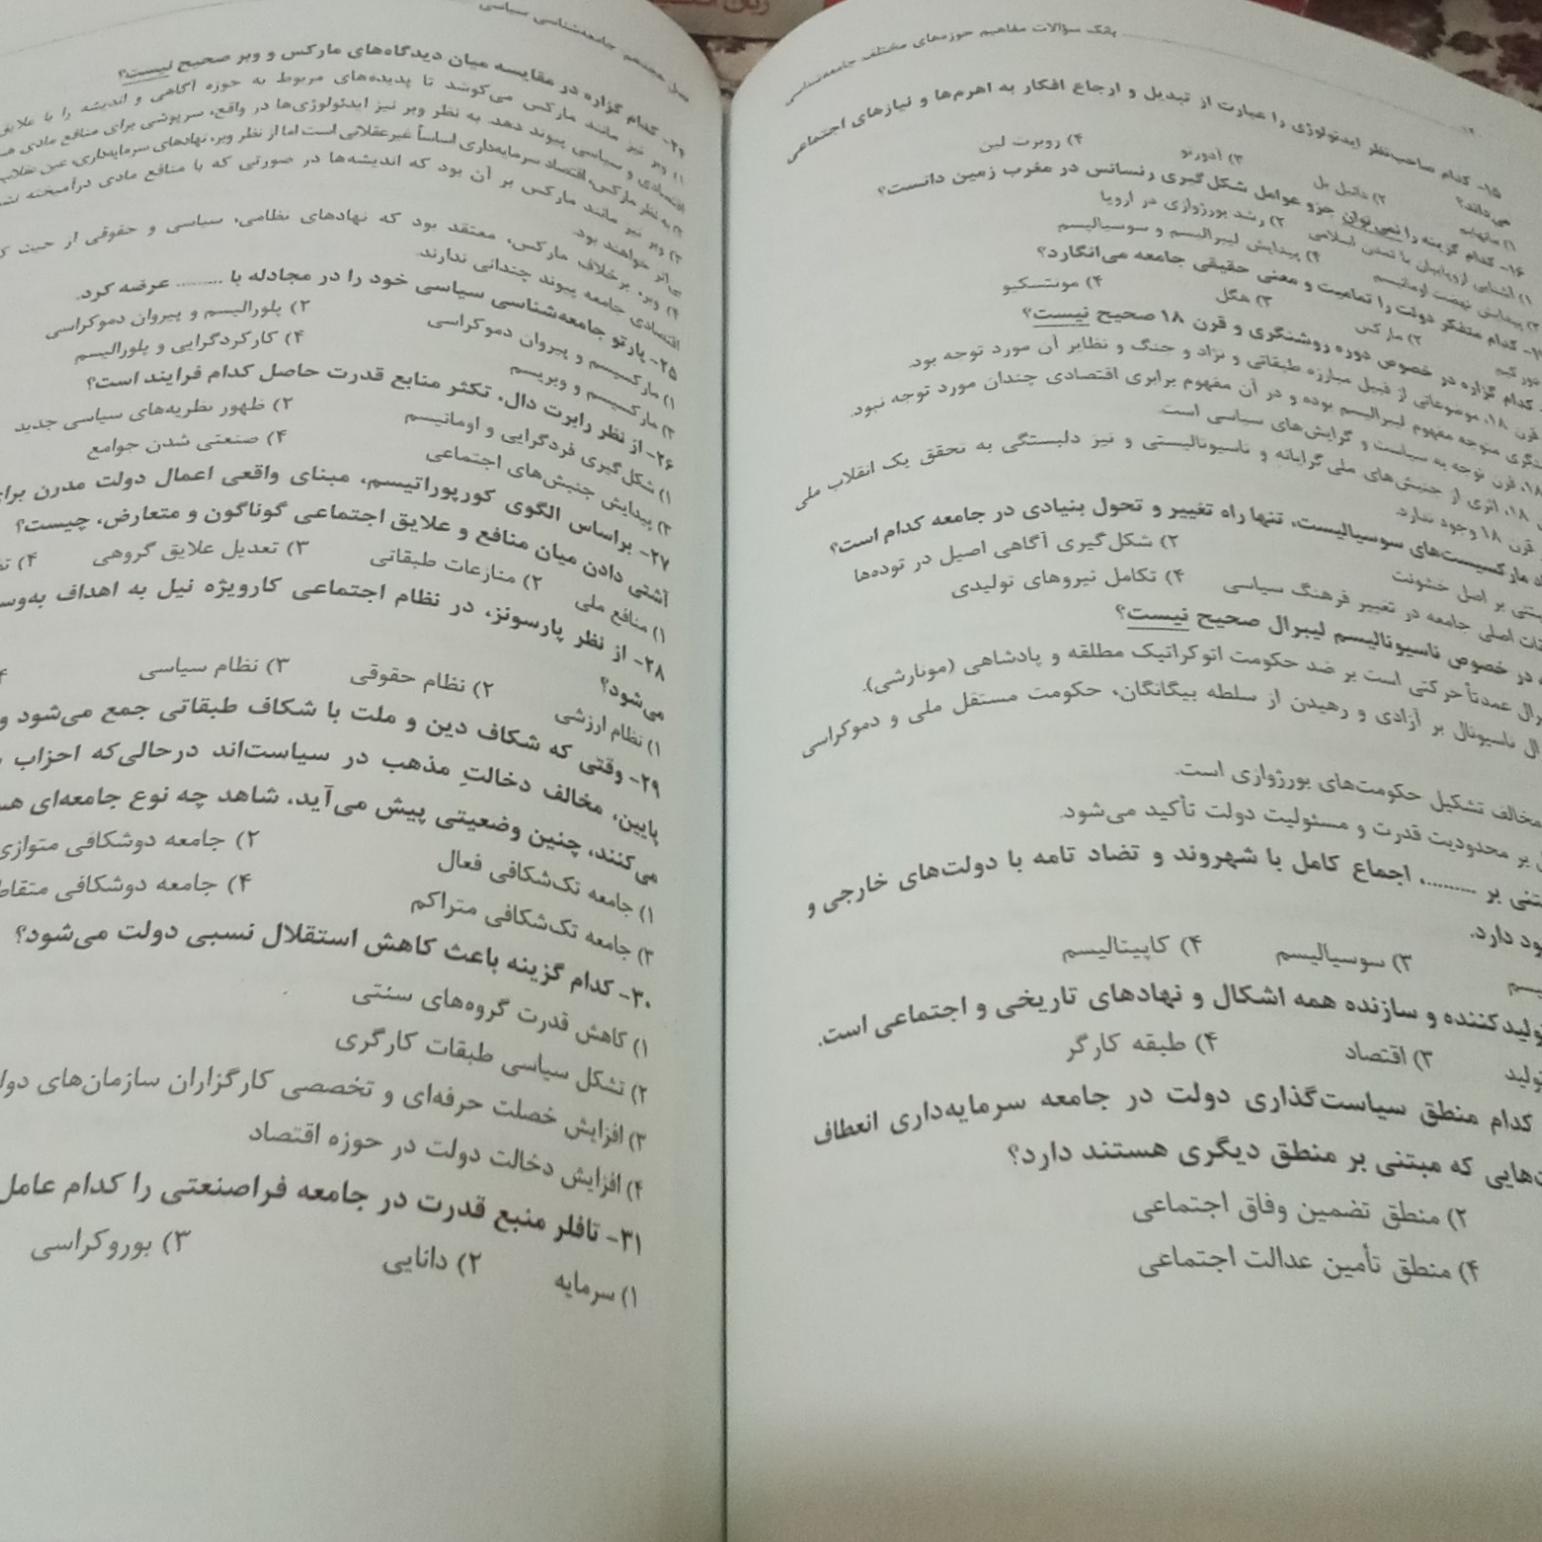 بانک سؤالات مفاهیم حوزه‌های مختلف جامعه‌شناسی
۱۵- کدام صاحب‌نظر ایدئولوژی را عبارت از تبدیل و ارجاع افکار به اهرم‌ها و نیازهای اجتماعی
می‌داند؟
۱) مانهایم ۲) دانیل بل ۳) آدورنو ۴) روبرت لین
۱۶- کدام گزینه را نمی‌توان جزو عوامل شکل‌گیری رنسانس در مغرب زمین دانست؟
۱) آشنایی اروپاییان با تمدن اسلامی ۲) رشد بورژوازی در اروپا
۳) پیدایش نهضت اومانیسم ۴) پیدایش لیبرالیسم و سوسیالیسم
کدام متفکر دولت را تمامیت و معنی حقیقی جامعه می‌انگارد؟
دورکیم ۲) مارکس ۳) هگل ۴) مونتسکیو
کدام گزاره در خصوص دوره روشنگری و قرن ۱۸ صحیح نیست؟
قرن ۱۸، موضوعاتی از قبیل مبارزه طبقاتی و نژاد و جنگ و نظایر آن مورد توجه بود.
متوجه مفهوم لیبرالیسم بوده و در آن مفهوم برابری اقتصادی چندان مورد توجه نبود.
۱۸، قرن توجه به سیاست و گرایش‌های سیاسی است.
۱۸، اثری از جنبش‌های ملی‌گرایانه و ناسیونالیستی و نیز دلبستگی به تحقق یک انقلاب ملی
قرن ۱۸ وجود ندارد.
مارکسیست‌های سوسیالیست، تنها راه تغییر و تحول بنیادی در جامعه کدام است؟
بر اصل خشونت ۲) شکل‌گیری آگاهی اصیل در توده‌ها
اصلی جامعه در تغییر فرهنگ سیاسی ۴) تکامل نیروهای تولیدی
در خصوص ناسیونالیسم لیبرال صحیح نیست؟
عمدتاً حرکتی است بر ضد حکومت اتوکراتیک مطلقه و پادشاهی (مونارشی).
ناسیونال بر آزادی و رهیدن از سلطه بیگانگان، حکومت مستقل ملی و دموکراسی
مخالف تشکیل حکومت‌های بورژوازی است.
بر محدودیت قدرت و مسئولیت دولت تأکید می‌شود.
بر ........، اجماع کامل با شهروند و تضاد تامه با دولت‌های خارجی و
دارد.
۳) سوسیالیسم ۴) کاپیتالیسم
تولیدکننده و سازنده همه اشکال و نهادهای تاریخی و اجتماعی است.
تولید ۳) اقتصاد ۴) طبقه کارگر
کدام منطق سیاست‌گذاری دولت در جامعه سرمایه‌داری انعطاف
که مبتنی بر منطق دیگری هستند دارد؟
۲) منطق تضمین وفاق اجتماعی
۴) منطق تأمین عدالت اجتماعی
فصل هجدهم: جامعه‌شناسی سیاسی
۲۴- کدام گزاره در مقایسه میان دیدگاه‌های مارکس و وبر صحیح نیست؟
۱) وبر نیز مانند مارکس می‌کوشد تا پدیده‌های مربوط به حوزه آگاهی و اندیشه را با علایق
اقتصادی و سیاسی پیوند دهد. به نظر وبر نیز ایدئولوژی‌ها در واقع، سرپوشی برای منافع مادی
۲) به نظر مارکس، اقتصاد سرمایه‌داری اساساً غیرعقلانی است اما از نظر وبر، نهادهای سرمایه‌داری، عین
۳) وبر نیز مانند مارکس بر آن بود که اندیشه‌ها در صورتی که با منافع مادی درآمیخته
بی‌اثر خواهند بود.
۴) وبر، برخلاف مارکس، معتقد بود که نهادهای نظامی، سیاسی و حقوقی از حیث
اقتصادی جامعه پیوند چندانی ندارند.
۲۵- پارتو جامعه‌شناسی سیاسی خود را در مجادله با ........ عرضه کرد.
۱) مارکسیسم و پیروان دموکراسی ۲) پلورالیسم و پیروان دموکراسی
۳) مارکسیسم و وبریسم ۴) کارکردگرایی و پلورالیسم
۲۶- از نظر رابرت دال، تکثر منابع قدرت حاصل کدام فرایند است؟
۱) شکل‌گیری فردگرایی و اومانیسم ۲) ظهور نظریه‌های سیاسی جدید
۳) پیدایش جنبش‌های اجتماعی ۴) صنعتی شدن جوامع
۲۷- براساس الگوی کورپوراتیسم، مبنای واقعی اعمال دولت مدرن برای
آشتی دادن میان منافع و علایق اجتماعی گوناگون و متعارض، چیست؟
۱) منافع ملی ۲) منازعات طبقاتی ۳) تعدیل علایق گروهی ۴)
۲۸- از نظر پارسونز، در نظام اجتماعی کارویژه نیل به اهداف
می‌شود؟
۱) نظام ارزشی ۲) نظام حقوقی ۳) نظام سیاسی
۲۹- وقتی که شکاف دین و ملت با شکاف طبقاتی جمع می‌شود و
پایین، مخالف دخالتِ مذهب در سیاست‌اند درحالی‌که احزاب
می‌کنند، چنین وضعیتی پیش می‌آید، شاهد چه نوع جامعه‌ای
۱) جامعه تک‌شکافی فعال ۲) جامعه دوشکافی متوازی
۳) جامعه تک‌شکافی متراکم ۴) جامعه دوشکافی
۳۰- کدام گزینه باعث کاهش استقلال نسبی دولت می‌شود؟
۱) کاهش قدرت گروه‌های سنتی
۲) تشکل سیاسی طبقات کارگری
۳) افزایش خصلت حرفه‌ای و تخصصی کارگزاران سازمان‌های
۴) افزایش دخالت دولت در حوزه اقتصاد
۳۱- تافلر منبع قدرت در جامعه فراصنعتی را کدام عامل
۱) سرمایه ۲) دانایی ۳) بوروکراسی